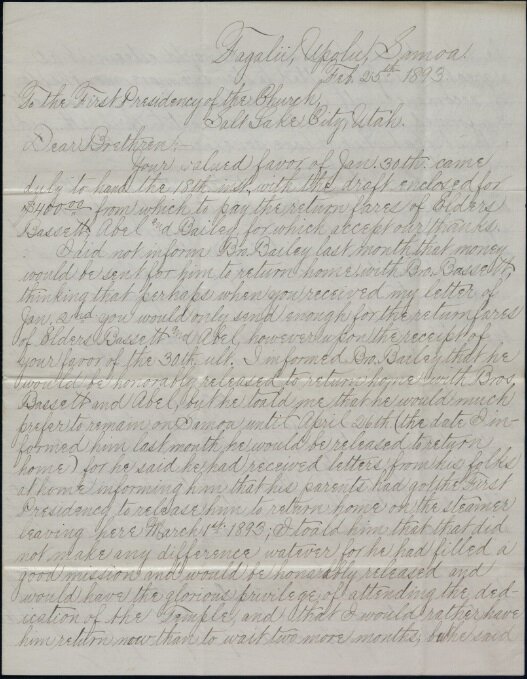 Fagalii, Upolu, Samoa.
Feb. 25th 1893
To the First Presidency of the Church,
Salt Lake City, Utah.
Dear Brethren:—
Your valued favor of Jan. 30th came
duly to hand the 18th inst. with the draft enclosed for
$400.00 from which to pay the return fares of Elders
Bassett, Abel and Bailey, for which accept our thanks.
I did not inform Bro. Bailey last month that money
would be sent for him to return home with Bro. Bassett,
thinking that perhaps when you received my letter of
Jan. 2nd you would only send enough for the return fares
of Elders Bassett and Abel, however upon the receipt of
your favor of the 30th ult. I informed Bro. Bailey that he
would be honorably released to return home with Bros.
Bassett and Abel, but he toald me that he would much
prefer to remain on Samoa until April 26th (the date I in-
formed him last month he would be released to return
home) for he said he had received letters, from his folks
at home informing him that his parents had got the First
Presidency to release him to return home on the steamer
leaving here March 1st 1893; I toald him that that did
not make any difference watever for he had filled a
good mission and would be honarably released and
would have the glorious privilege of attending the ded-
ication of the Temple, and that I would rather have
him return now than to wait two more months, but he said